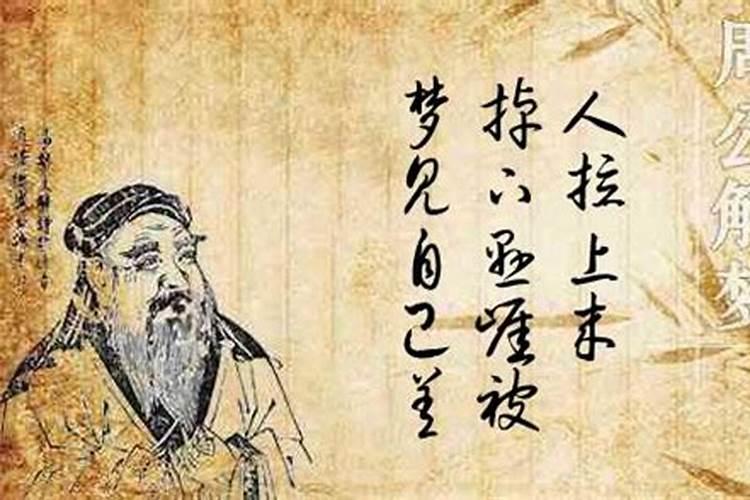 周公解梦
梦见自己差
掉下悬崖被
人拉上来